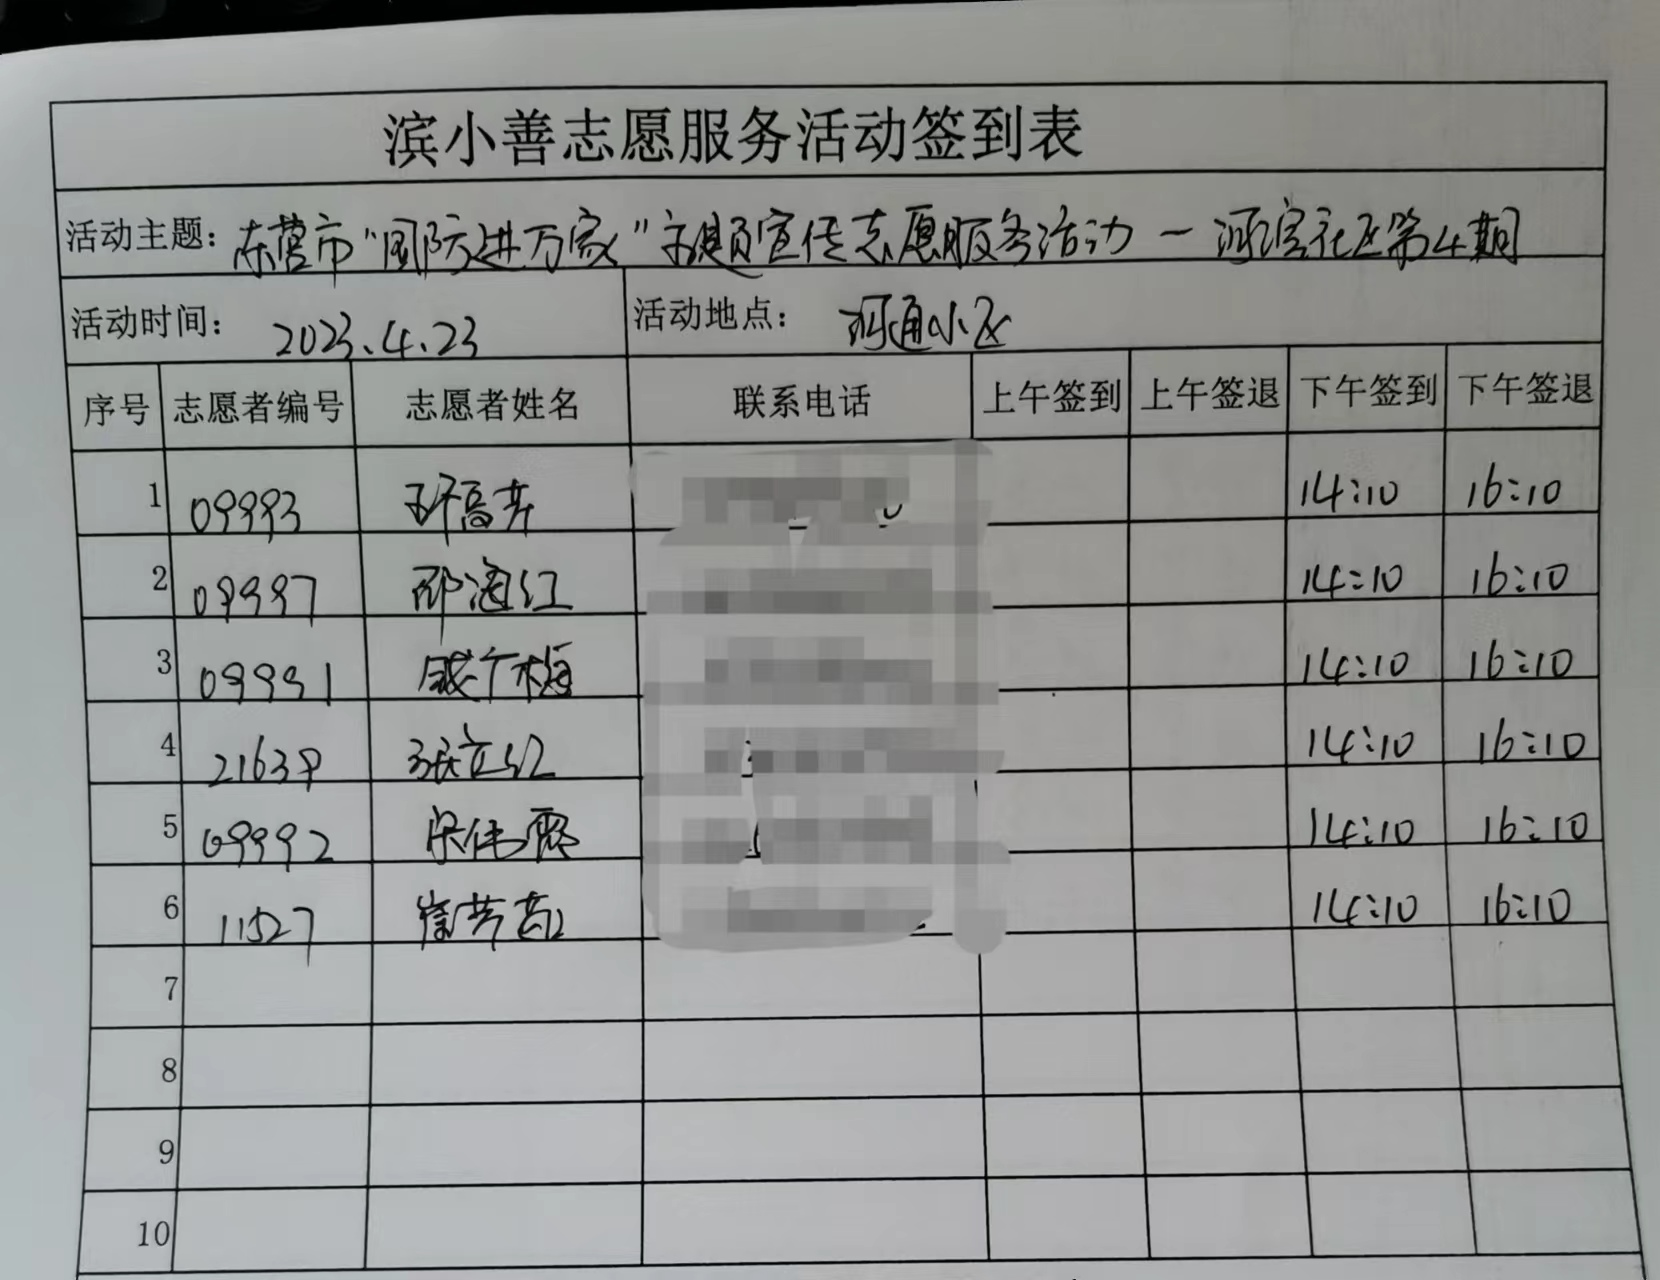 滨小善志愿服务活动签到表
活动主题: 东营市“国防进万家”主题宣传志愿服务活动一河滨社区第4期
活动时间: 2023.4.23 活动地点: 河通小区
序号 志愿者编号 志愿者姓名 联系电话 上午签到 上午签退 下午签到 下午签退
1 09993 14:10 16:10
2 09997 邵海红 14:10 16:10
3 09991 14:10 16:10
4 21639 张立红 14:10 16:10
5 09992 宋伟霞 14:10 16:10
6 11527 14:10 16:10
7
8
9
10